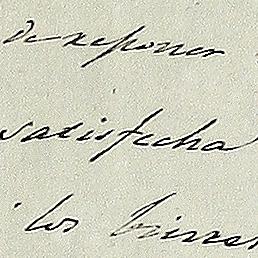 de reponer
satisfecha
los bienes